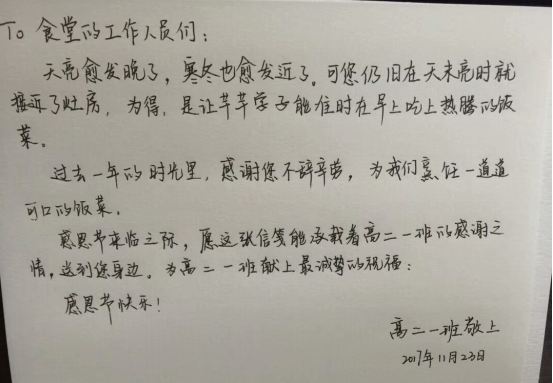 To 食堂的工作人员们:
天亮愈发晚了,寒冬也愈发近了。可您仍旧在天未亮时就
接近了灶房,为得,是让芊芊学子能准时在早上吃上热腾的饭
菜。
过去一年的时光里,感谢您不辞辛劳,为我们烹饪一道道
可口的饭菜。
感恩节来临之际,愿这张信笺能承载着高二一班的感谢之
情,送到您身边。为高二一班献上最诚挚的祝福:
感恩节快乐!
高二一班敬上
2017年11月23日